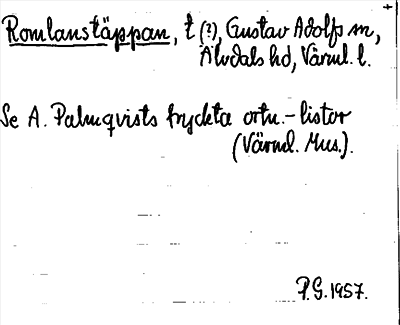 Romlanstäppan, t (?), Gustav Adolfs sn,
Älvdals hd, Värml. l.
Se A. Palmqvists tryckta ortn.-listor
(Värml. Mus.).
P.G. 1957.